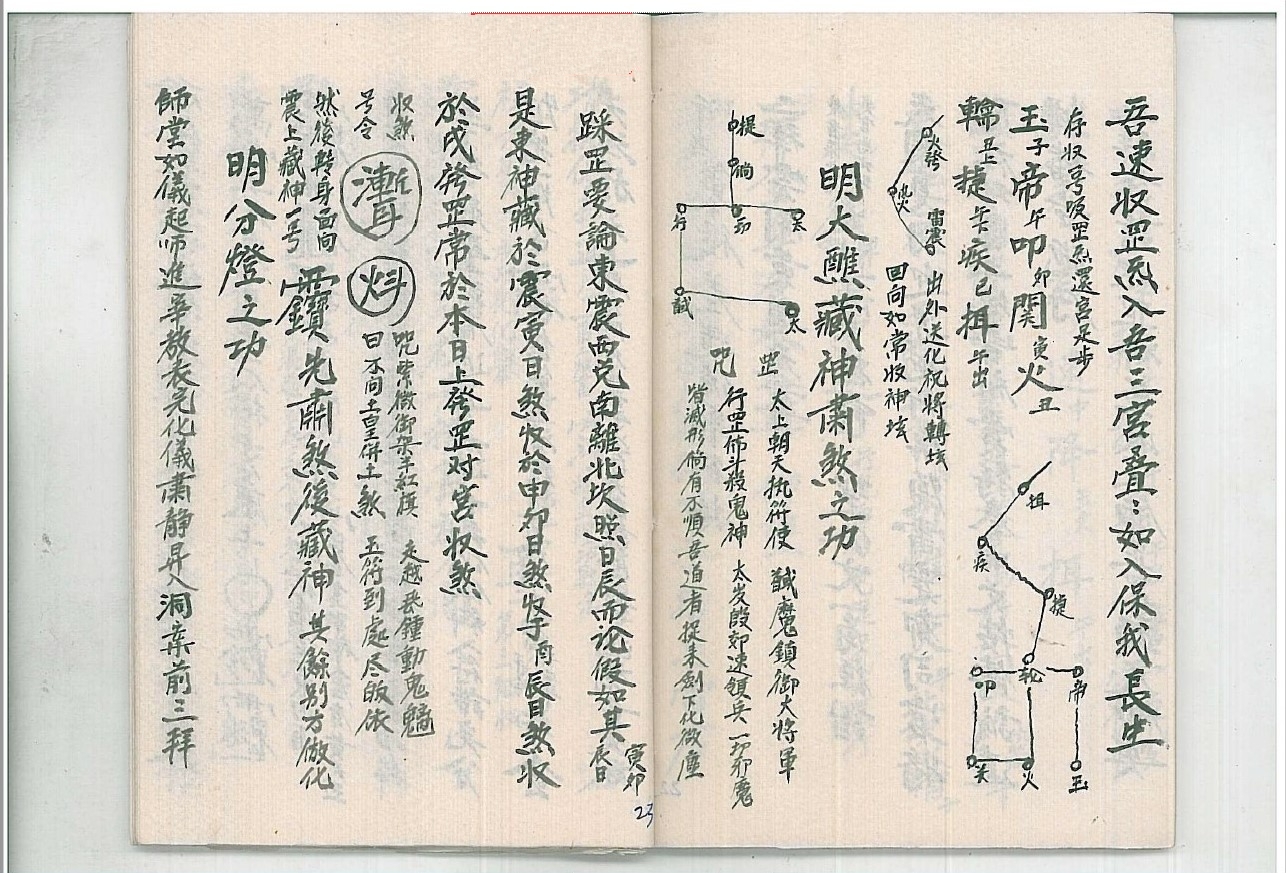 吾速收罡炁入吾三宮疊:如入保我長生
存收亭吸罡炁還宮足步
玉子帝午叩卯関寅火丑
輪丑上捷午疾己揖午出
火
雷震
出外送化祝將轉垓
回向如常收神垓
揖
疾
捷
叩 轮 帝
关 火 玉
明大醮藏神肅煞之功
提
倘
行 卯 太
馘 太
罡
咒
太上朝天执符使 馘魔鎖御大將軍
行罡佈斗殺鬼神 太岁殷郊速領兵 一切邪魔
皆滅形倘有不順吾道者捉来劍下化微塵
踩罡要論東震西兑南離北坎照日辰而论假如其寅卯辰日
是東神藏於震寅日煞收於申卯日煞收于酉辰日煞收
於戌發罡常於本日上發罡对宮收煞
收煞
号令
咒紫微御架羊紅旗 走越飛鍾動鬼魖
曰不问土皇併土煞 玉符到處尽皈依
然後転身面向
震上藏神一号
先肅煞後藏神 其餘别方做化
明分燈之功
師堂如儀起师進辛放表完化儀肅靜昇入洞案前三拜
23